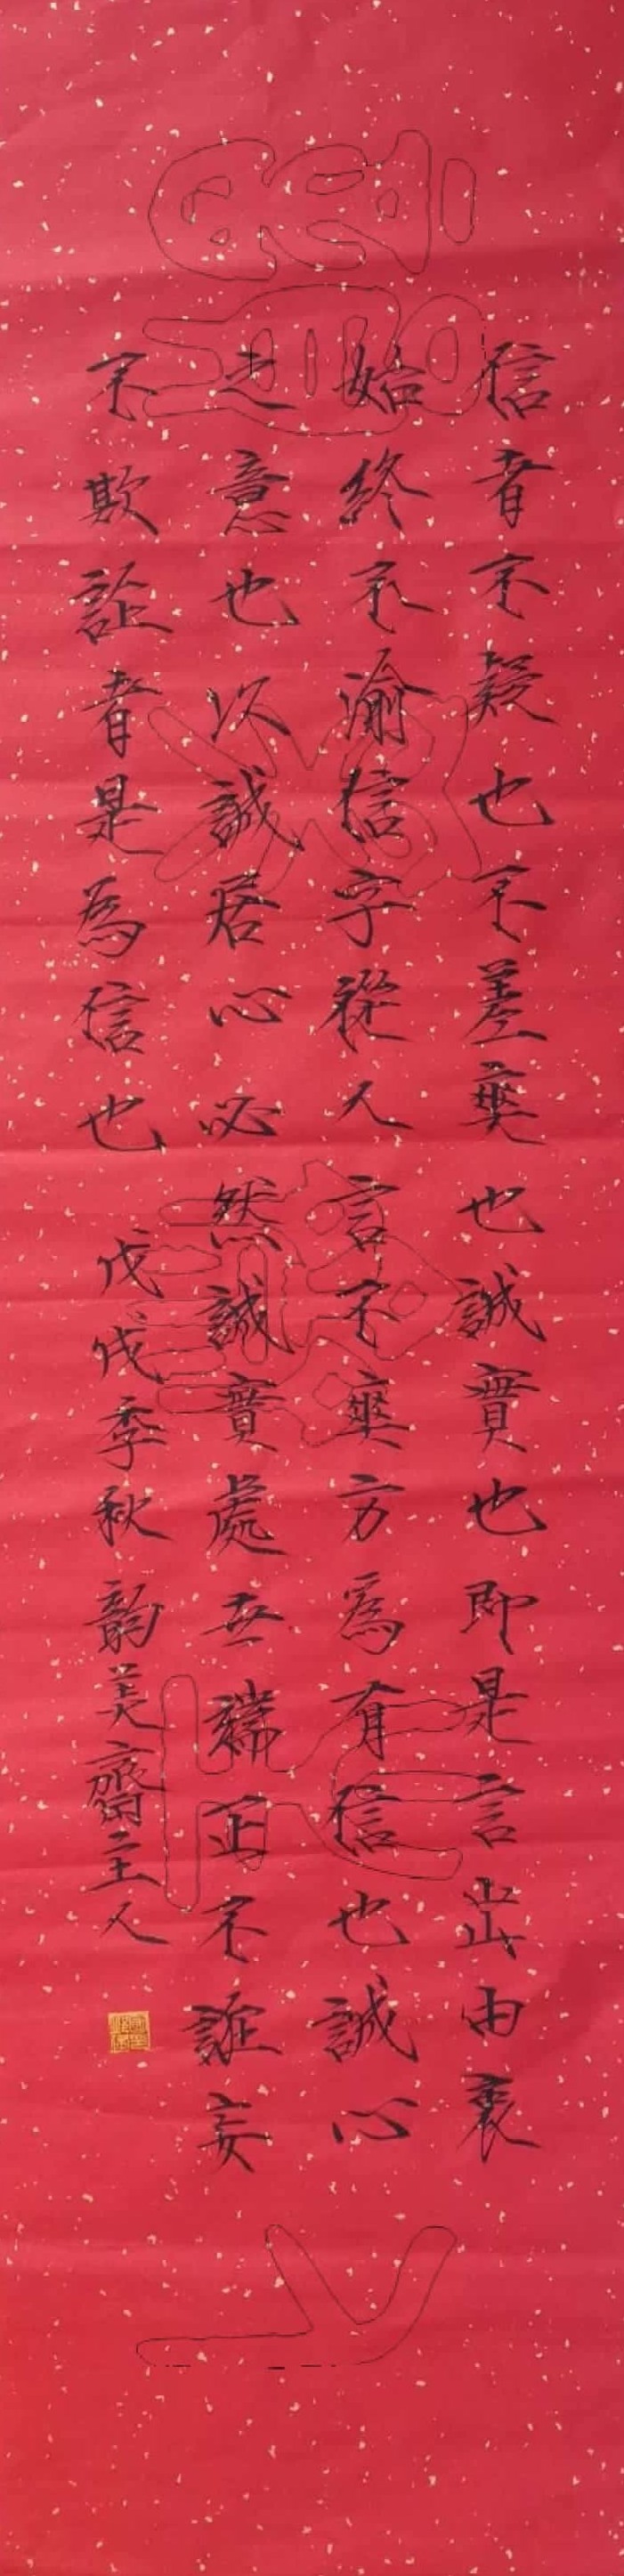 信者不疑也不差爽也誠實也即是言出由衷
始終不渝信字從人言不爽方為有信也誠心
之意也以誠居心必然誠實處世端正不誑妄
不欺詐者是為信也
戊戌季秋韵美齋主人